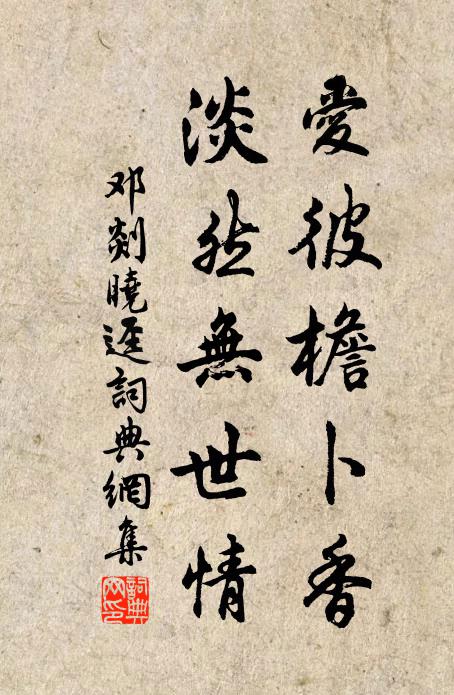 愛彼檐卜香
淡然無世情
邓剡曉逕詞典網集
詞典網印